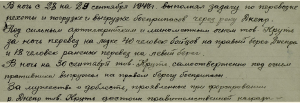 В ночь с 28 на 29 сентября 1943г. выполнял задачу по переправе
пехоты и погрузке и выгрузке боеприпасов через реку Днепр.
Под сильным артиллерийским и миномётным огнем тов. Крутя
за ночь перевез на лодке 40 человек бойцов на правый берег Днепра
и 18 человек раненых перевез на левый берег.
В ночь на 30 сентября тов. Крутя самоотверженно под огнем
противника выгружал на правом берегу боеприпасы
За мужество и доблесть, проявленные при форсировании
р. Днепр тов. Крутя достоин правительственной награды